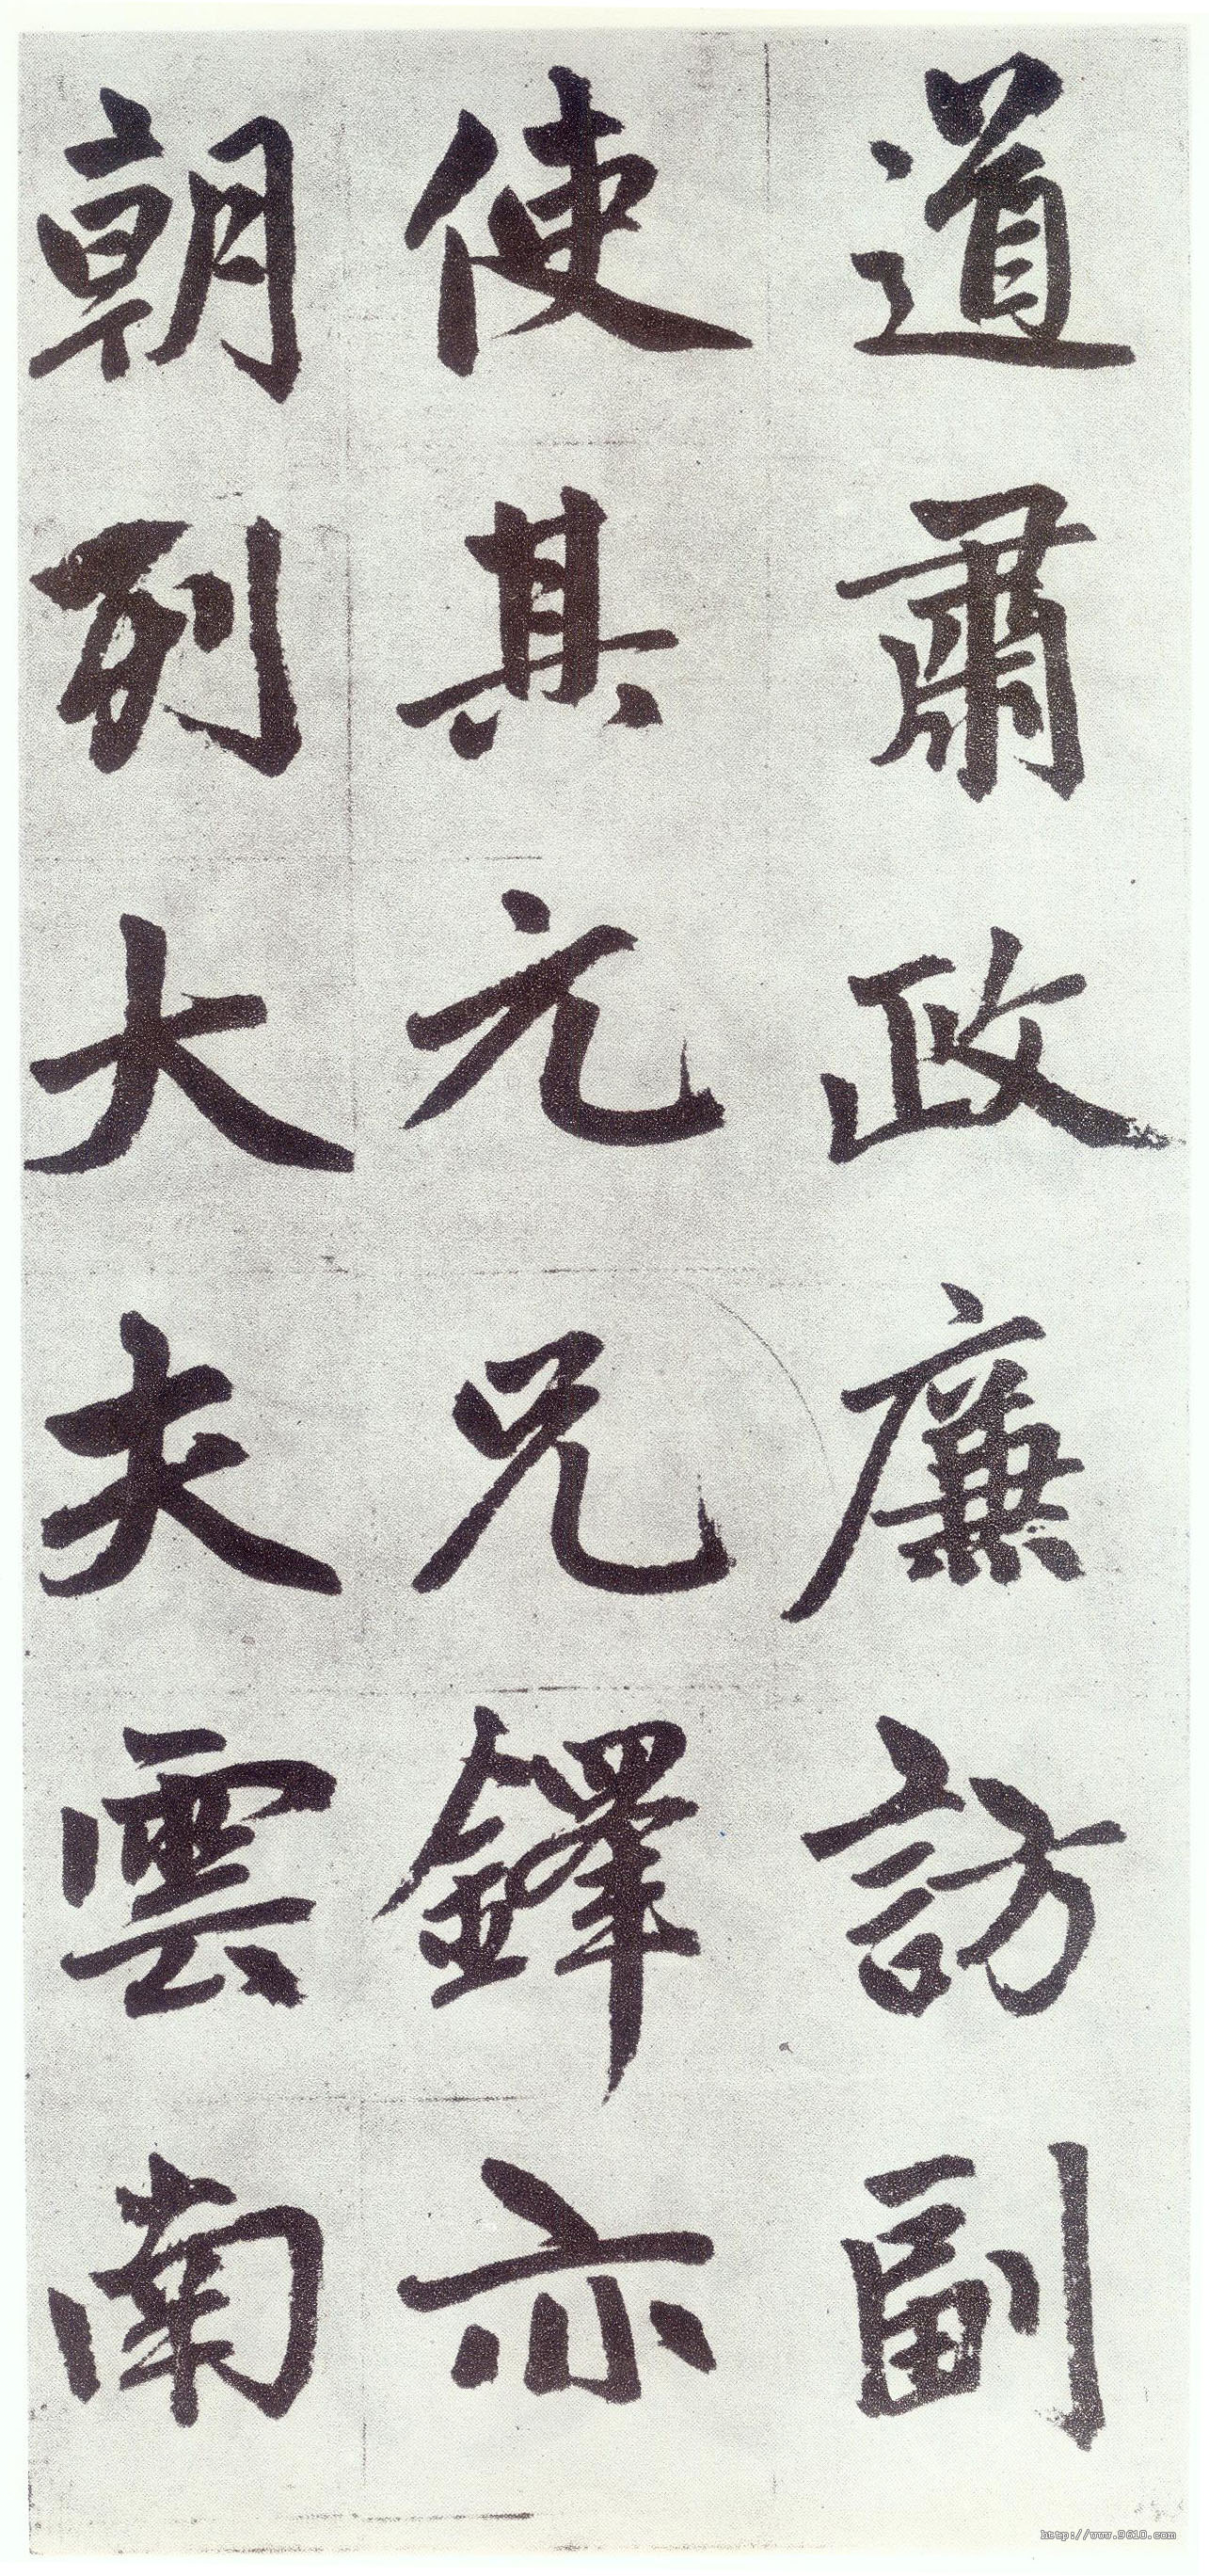 道肅政廉訪副
使其元兄鐸亦
朝列大夫雲南
http://www.9610.com